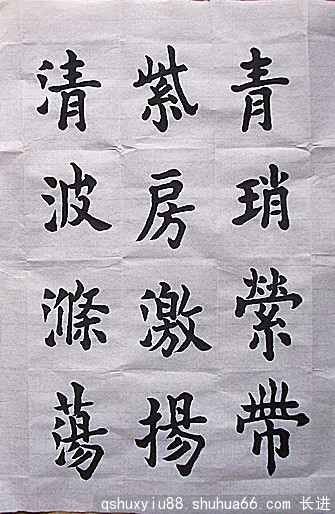 青瑣縈帶
紫房激揚
清波滌蕩
qshuxyiu88.shuhua66.com 长进